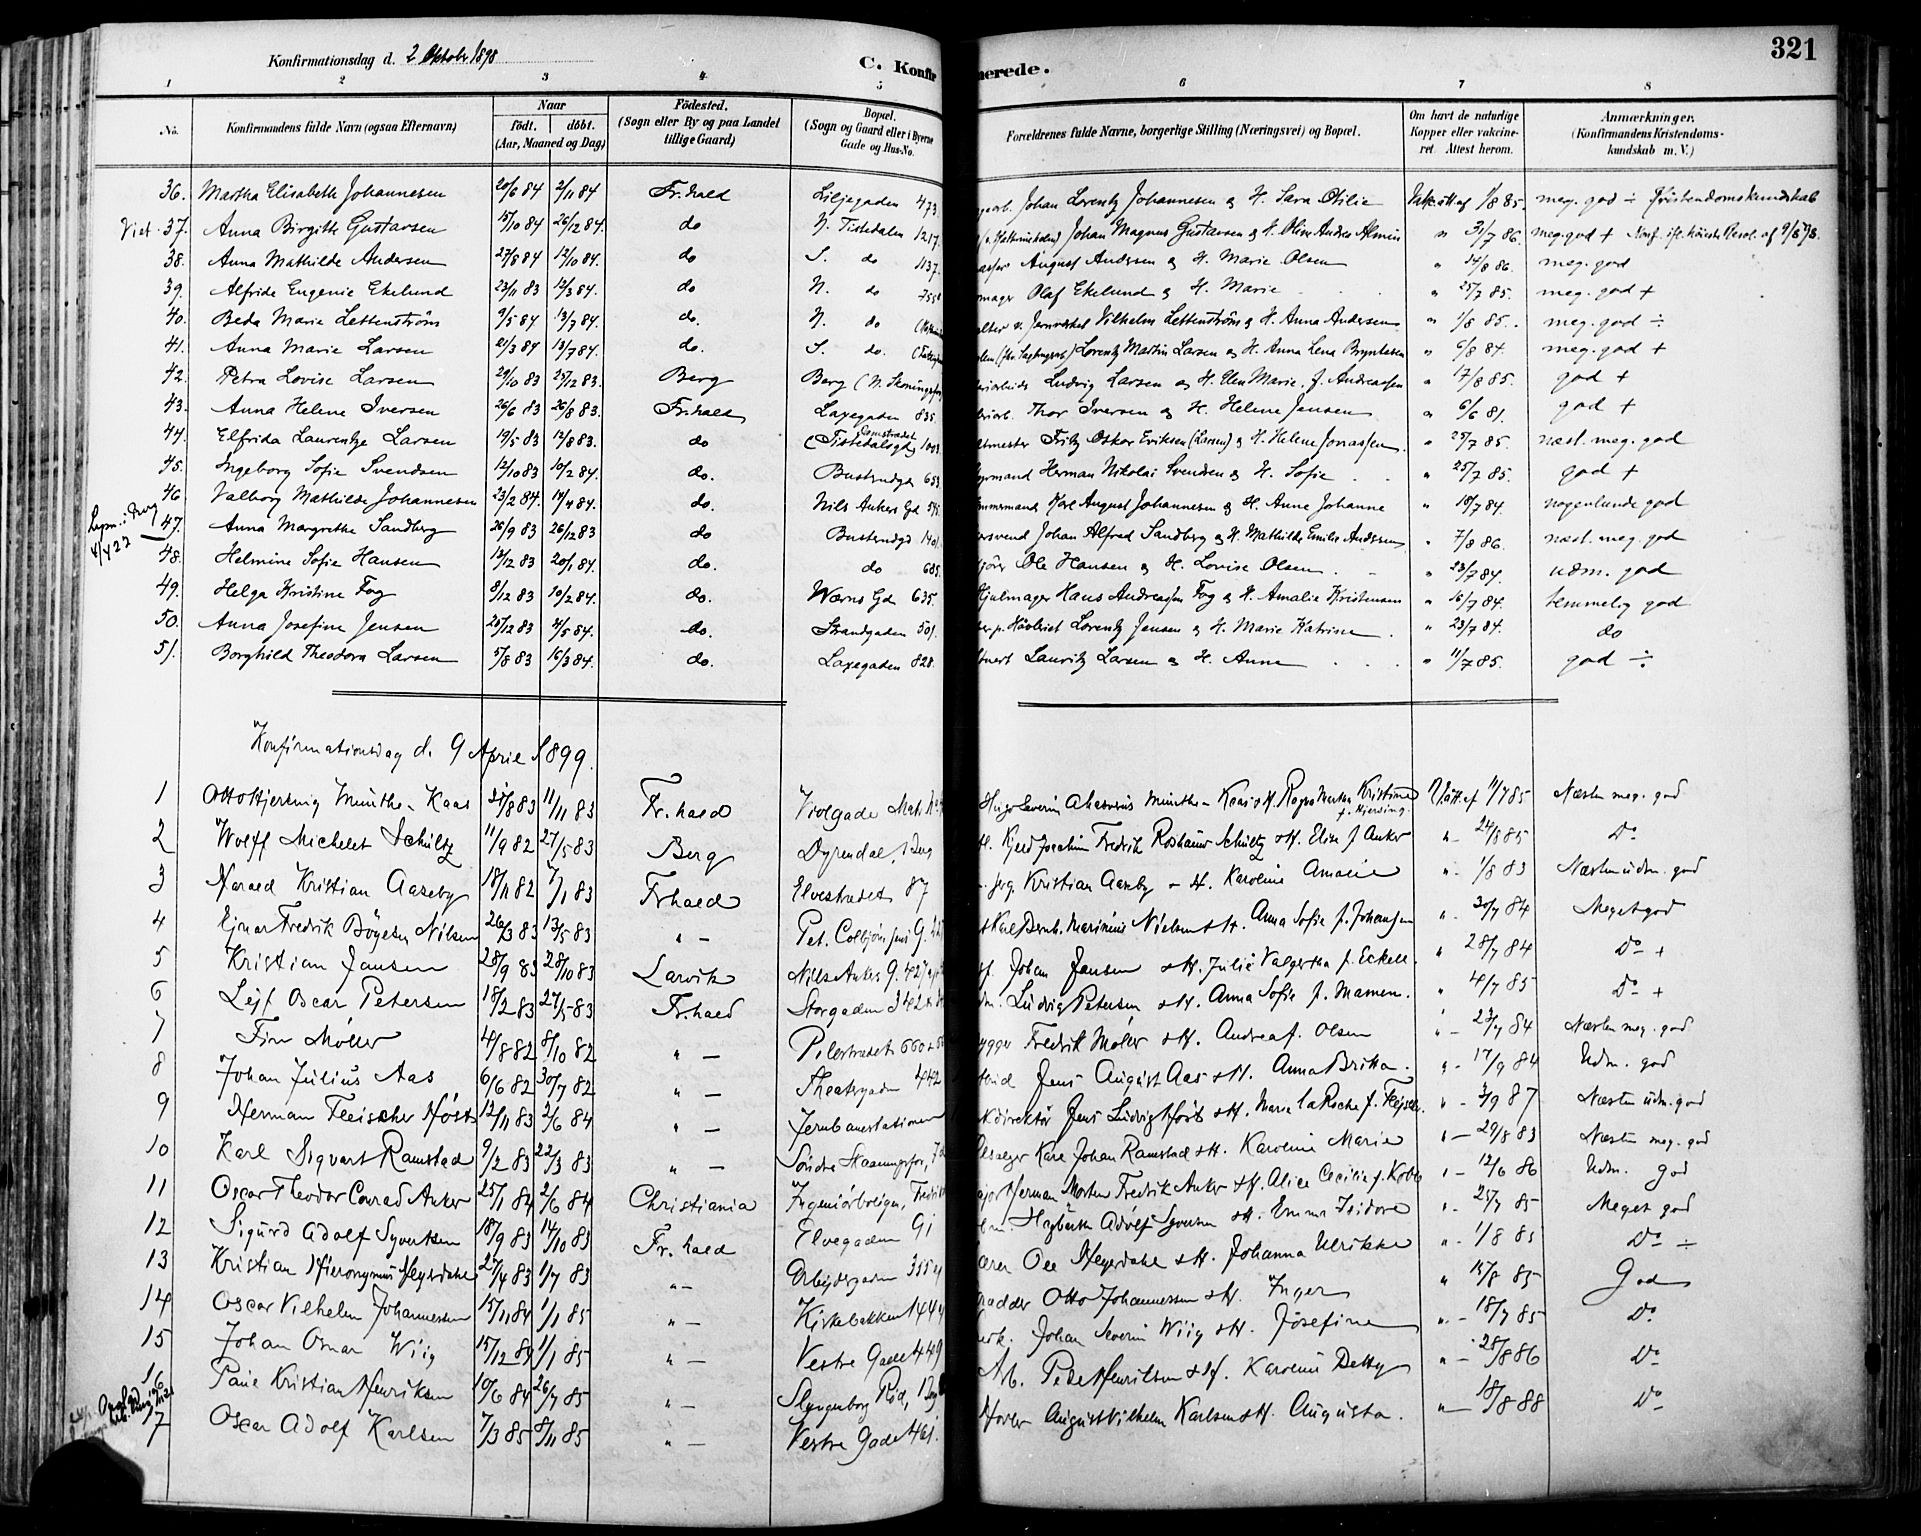 Konfirmationsdag d. 2 Oktober 1898
C. Konfirmerede.
321
1 2 3 4 5 6 7 8
No.
Konfirmandens fulde Navn (ogsaa Efternavn)
Naar
födt. döbt.
(Aar, Maaned og Dag)
Födested.
(Sogn eller By og paa Landet tillige Gaard)
Bopæl.
(Sogn og Gaard eller i Byerne Gade og Hus-No.
Forældrenes fulde Navne, borgerlige Stilling (Næringsvei) og Bopæl.
Om havt de naturlige Kopper eller vakcineret. Attest herom.
Anmærkninger.
(Konfirmandens Kristendomskundskab m. V.)
36. Martha Elisabeth Johannesen 20/6 84 2/11 84 Fr.hald Liljegaden 473 Johan Lorentz Johannesen & H. Sara Otilie Vak. att. af 1/8 85. meg. god ÷ Kristendomskundskab
Viet 37. Anna Birgitte Gustavsen 15/10 84 26/12 84. do N. Tistedalen 1217. Johan Magnus Gustavsen & H. Oline Andrea " 31/7 86. meg. god +
38. Anna Mathilde Andersen 27/8 84 12/10 84. do S. do 1137. August Andersen & H. Marie Olsen " 24/8 86. meg. god
39. Alfride Eugenie Ekelund 23/11 83 12/3 84. do N. do Olaf Ekelund & H. Marie " 25/7 85. meg. god +
40. Beda Marie Lettenström 9/5 84 13/7 84. do. N. do Vilhelm Lettenström & H. Anna Andersen " 1/8 85. meg. god ÷
41. Anna Marie Larsen 21/3 84 13/7 84. do. S. do. Lorentz Martin Larsen & H. Anna Lena " 6/8 84. meg. god +
42. Petra Lovise Larsen 29/10 83 25/12 83. Berg Berg Ludvig Larsen & H. Elen Marie f. Andreassen " 17/8 85. god +
43. Anna Helene Iversen 26/6 83 26/8 83. Fr.hald Laxegaden 835. Thor Iversen & H. Helene Jensen " 6/6 81. god +
44. Elfrida Laurentze Larsen 19/5 83 12/8 83. do Tistedalsgd. 1003. Fritz Oskar Eriksen (Larsen) & H. Helene Jonassen. " 25/7 85. næst. meg. god
45. Ingeborg Sofie Svendsen 12/10 83 10/2 84. do. Busterudgd 653 Herman Nikolai Svendsen & H. Sofie " 25/7 85. god +
46 Valborg Mathilde Johannesen 23/2 84. 14/4 84. do. Nils Ankers Gd Karl August Johannesen & H. Anne Johanne " 18/7 84. nogenlunde god
47. Anna Margrethe Sandberg 26/9 83 26/12 83 do Busterudgd 1401 Johan Alfred Sandberg & H. Mathilde Emilie Andersen " 7/8 86. næst. meg. god
4/4 22
48. Helmine Sofie Hansen 12/12 83 20/1 84. do. do 685. Ole Hansen & H. Lovise Olsen. " 23/7 84. udm. god
49. Helga Kristine Fog 8/12 83 10/2 84. do. Wærns Gd 635. Hjulmager Hans Andreassen Fog & H. Amalie Kristensen " 16/7 84. temmelig god
50. Anna Josefine Jensen 25/12 83 4/5 84. do. Strandgaden 501. Lorentz Jensen & H. Marie Katrine " 23/7 84. do
51. Borghild Theodora Larsen 5/8 83 16/3 84. do. Laxegaden 828. Lauritz Larsen & H. Anna " 11/7 85. god ÷
Konfirmationsdag d. 9 April 1899.
1 Otto Hjersing Munthe-Kaas 31/8 83 11/11 83 Fr.hald Hugo Severin Ahasverus Munthe-Kaas & H. Kristine f. Hjersing 11/7 85 Næsten meg. god
2 Wolff Michelet Schültz 11/9 82 27/5 83 Berg Dyrendal, i Berg Joachim Fredrik Schültz & H. Elise f. Anker " 24/8 85 Do
3 Harald Kristian Aaseby 18/11 82 7/1 83 Frhald Elvestrædet 87 Kristian Aaseby & H. Karoline Amalie " 1/8 83 Næsten udm. god
4 Ejnar Fredrik Böyesen Nilsen 26/3 83 13/5 83 " — Pet. Colbjörnsens G. Karl Bernh. Marinius Nielsen & H. Anna Sofie f. Johansen " 30/7 84 Meget god
5 Kristian Jansen 28/9 83 28/10 83 Larvik Nils Ankers G. 427 Johan Jansen & H. Julie Valgertha f. Eckell " 28/7 84 Do +
6 Lejf Oscar Petersen 18/2 83 27/5 83 Fr.hald Storgaden 342 Ludvig Petersen & H. Anna Sofie f. Mamen. " 4/7 85 Do +
7 Finn Möller 4/8 82 8/10 82 " — Pilestrædet 660 Fredrik Möller & H. Andrea f. Olsen " — 23/7 84 Næsten meg. god
8 Johan Julius Aas 6/6 82 30/7 82 " — Theatergaden 442 Jens August Aas & H. Anna Britha. " — 17/9 84 Udm. god
9 Herman Fleischer Höst 12/11 83 2/6 84 " — Jernbanestationen direktör Jens Ludvig Höst & H. Marie la Roche f. " — 3/9 87 Næsten udm. god
10 Karl Sigvart Ramstad 9/2 83 22/3 83 " — Söndre Karl Johan Ramstad & H. Karoline Marie " — 29/8 83 Næsten meg. god
11 Oscar Theodor Conrad Anker 25/1 84 2/6 84 Christiania Ingeniörboligen, Herman Morten Fredrik Anker & H. Alice Cecilie f. " — 12/6 86 Udm. god
12 Sigurd Adolf Syvertsen 18/9 83 14/10 83 Fr.hald Elvegaden 91 Adolf Syversen & H. Emma Isidore " 25/7 85 Meget god
13 Kristian Hieronymus Hegerdahl 27/4 83 1/7 83 " — Arbejdergaden 355 Ole Hegerdahl & H. Johanna Ulrikke " 1/8 85 Do ÷
14 Oscar Vilhelm Johannessen 15/11 84 1/1 85 " — Kirkebakken 144 Otto Johannessen & H. Inger " 15/8 85 God
15 Johan Omar Wiig 15/12 84 1/1 85 " — Vestre Gade 449 Johan Severin Wiig & H. Josefine " — 18/7 85 Do
16 Paul Kristian Henriksen 10/6 84 26/7 85 " — Slyngenborg Röd, Peder Henriksen & H. Karoline Betty " — 28/8 86 Do
17 Oscar Adolf Karlsen 7/3 85 8/11 85 " — Vestre Gade 461. August Vilhelm Karlsen & H. Augusta. " — 18/8 88 Do